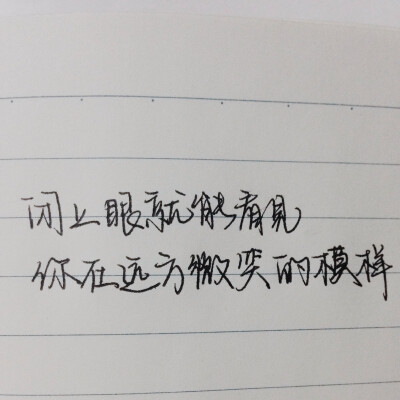 闭上眼就能看见
你在远方微笑的模样